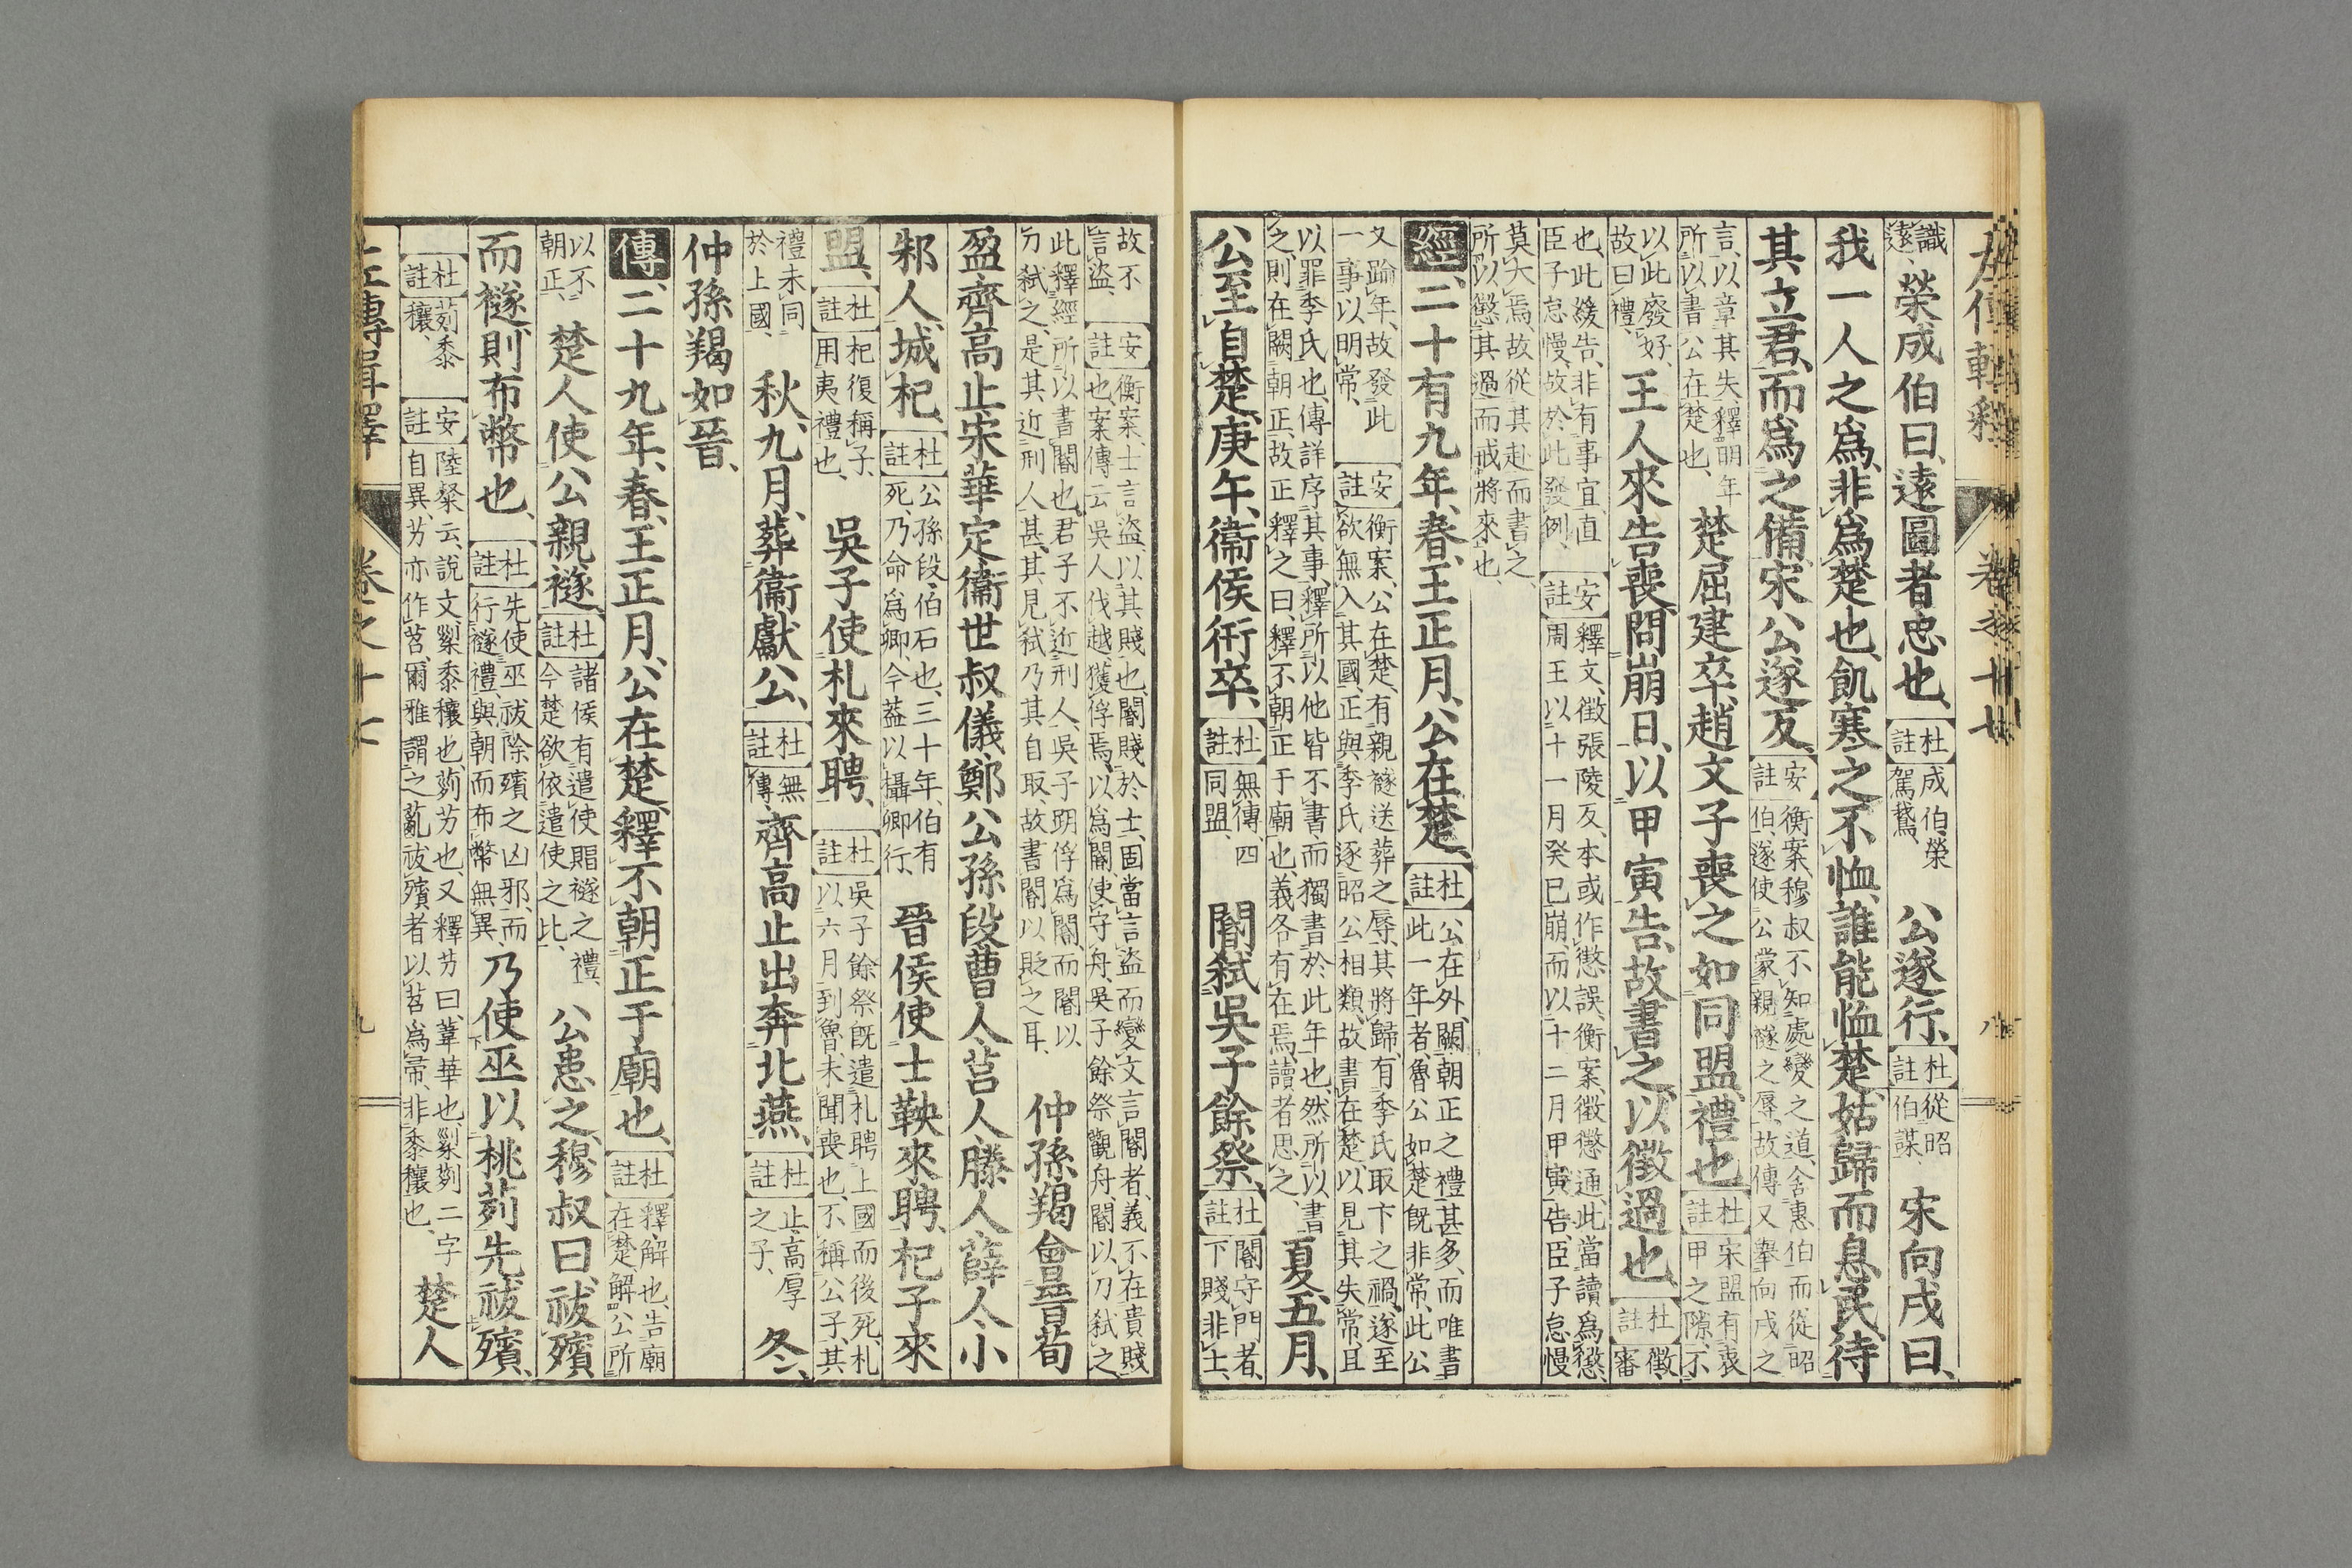 識遠、榮成伯曰、遠圖者忠也、杜註成伯、榮駕鵞、公遂行、杜註從昭伯謀、宋向戌曰、
我一人之爲、非爲楚也、飢寒之不恤、誰能恤楚、姑歸而息民、待
其立君、而爲之備、宋公遂反、安註衡案、穆叔不知處變之道、舍惠伯而從昭伯、遂使公蒙親襚之辱、故傳又擧向戌之
言、以章其失、釋明年所以書公在楚也、楚屈建卒、趙文子喪之如同盟、禮也、杜註宋盟有衷甲之隙、不
以此廢好、故曰禮、王人來告喪、問崩日、以甲寅告、故書之、以徵過也、杜註徵審
也、此緩告、非有事宜、直臣子怠慢、故於此發例、安註釋文、徵張陵反、本或作懲誤、衡案徵懲通、此當讀爲懲、周王以十一月癸巳崩、而以十二月甲寅告、臣子怠慢
莫大焉、故從其赴而書之、所以懲其過而戒將來也、
經、二十有九年、春、王正月、公在楚、杜註公在外、闕朝正之禮甚多、而唯書此一年者、魯公如楚既非常、此公
又踰年、故發此一事以明常、安註衡案、公在楚、有親襚送葬之辱、其將歸、有季氏取卞之禍、遂至欲無入其國、正與季氏逐昭公相類、故書在楚、以見其失常、且
以罪季氏也、傳詳序其事、釋所以他皆不書、而獨書於此年也、然所以書之、則在闕朝正、故正釋之曰、釋不朝正于廟也、義各有在焉、讀者思之、夏、五月、
公至自楚、庚午、衞侯衎卒、杜註無傳、四同盟、閽弑吳子餘祭、杜註閽守門者、下賤非士、
故不言盜、安註衡案、士言盜、以其賤也、閽賤於士、固當言盜而變文言閽者、義不在貴賤也、案傳云、吳人伐越、獲俘焉、以爲閽、使守舟、吳子餘祭觀舟、閽以刀弑之
此釋經所以書閽也、君子不近刑人、吳子刖俘爲閽、而閽以刀弑之、是其近刑人甚、其見弑乃其自取、故書閽以貶之耳、仲孫羯會晉荀
盈、齊高止、宋華定、衞世叔儀、鄭公孫段、曹人、莒人、滕人、薛人、小
邾人、城杞、杜註公孫段、伯石也、三十年、伯有死、乃命爲卿、今葢以攝卿行、晉侯使士鞅來聘、杞子來
盟、杜註杞復稱子、用夷禮也、吳子使札來聘、杜註吳子餘祭既遣札聘上國而後死、札以六月到魯、未聞喪也、不稱公子、其
禮未同於上國、秋、九月、葬衞獻公、杜註無傳、齊高止出奔北燕、杜註止、高厚之子、冬、
仲孫羯如晉、
傳、二十九年、春、王正月、公在楚、釋不朝正于廟也、杜註釋、解也、告廟在楚、解公所
以不朝正、楚人使公親襚、杜註諸侯有遣使賵襚之禮、今楚欲依遣使之比、公患之、穆叔曰、祓殯
而襚、則布幣也、杜註先使巫祓除殯之凶邪、而行襚禮、與朝而布幣無異、乃使巫以桃茢先祓殯、
杜註茢黍穰、安註陸粲云、說文、𥝥黍穰也、茢芀也、又釋芀曰、葦華也、𥝥茢二字自異、芀亦作苕、爾雅謂之薍、祓殯者以苕爲帚、非黍穰也、楚人
左傳輯釋 卷之十七 九